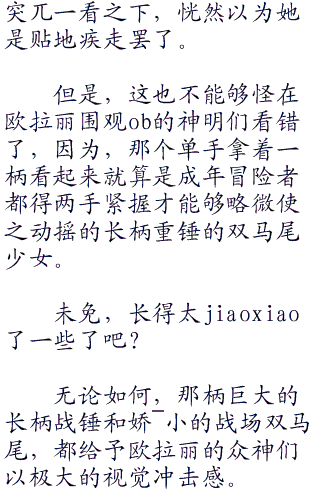 突兀一看之下，恍然以为她
是贴地疾走罢了。
但是，这也不能够怪在
欧拉丽围观ob的神明们看错
了，因为，那个单手拿着一
柄看起来就算是成年冒险者
都得两手紧握才能够略微使
之动摇的长柄重锤的双马尾
少女。
未免，长得太jiaoxiao
了一些了吧？
无论如何，那柄巨大的
长柄战锤和娇¯小的战场双马
尾，都给予欧拉丽的众神们
以极大的视觉冲击感。